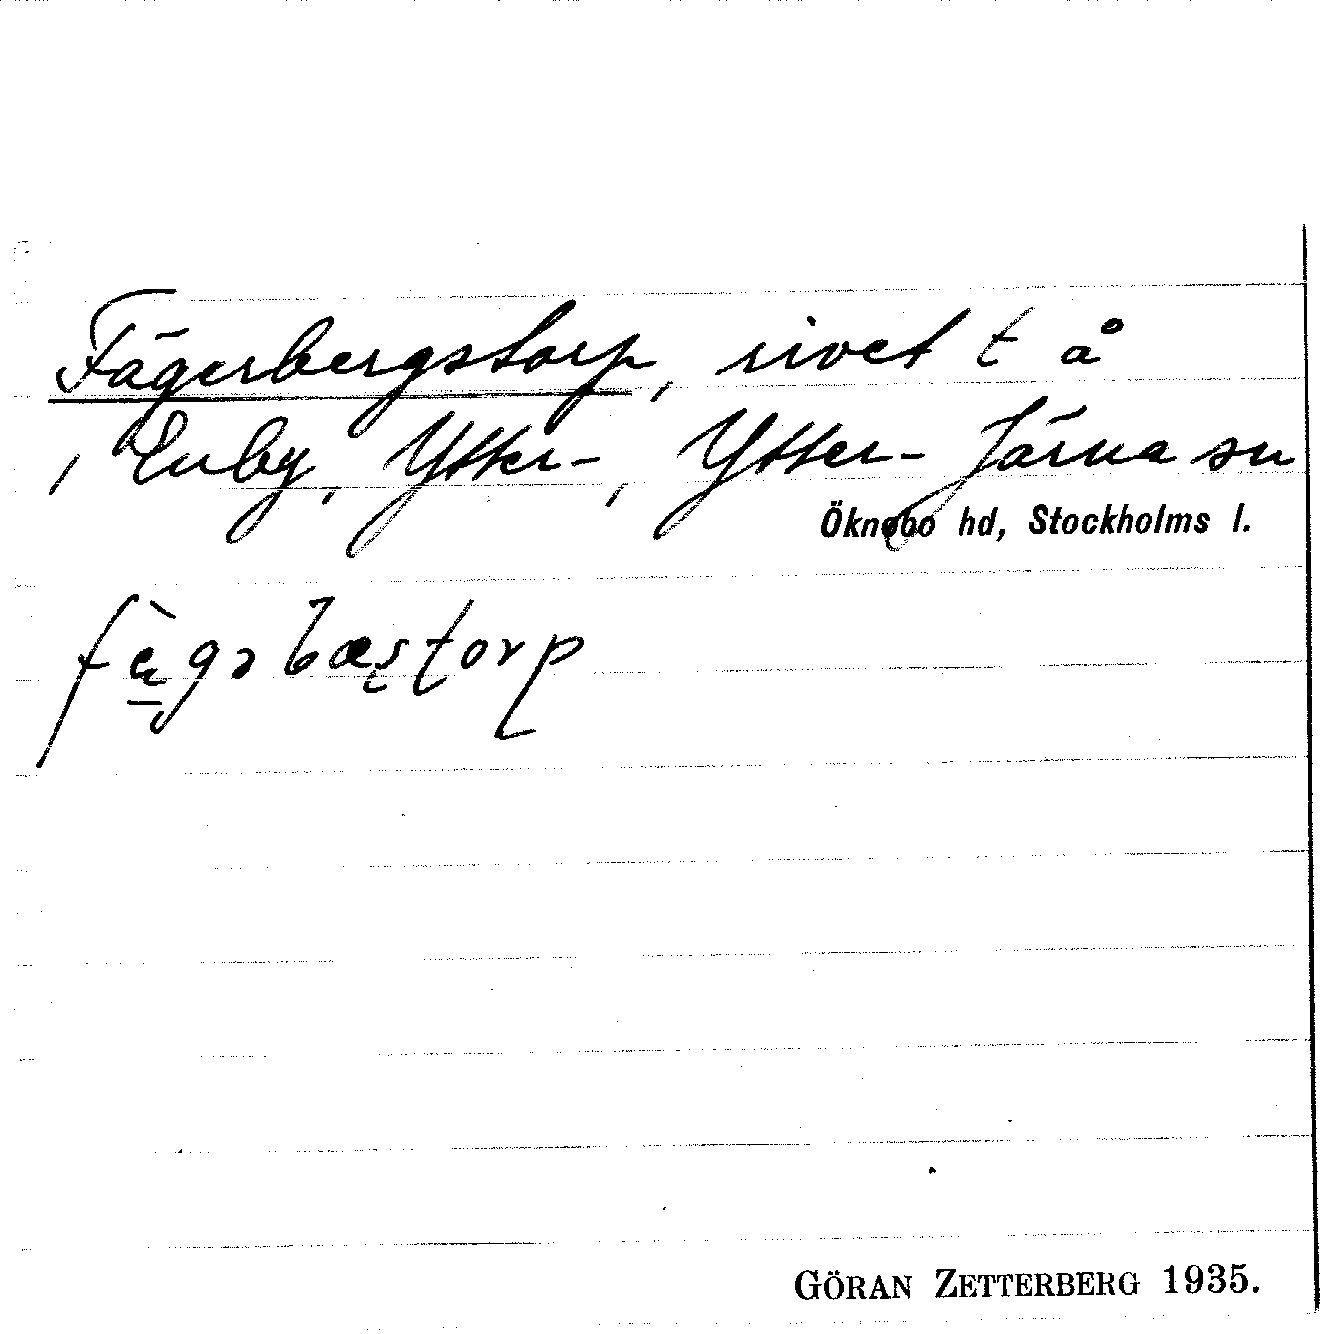 Fägerbergstorp, rivet t å
, Enby, Ytter-, Ytter-Järna sn
Öknebo hd, Stockholms l.
fä̀gəbæʂʈorp
GÖRAN ZETTERBERG 1935.